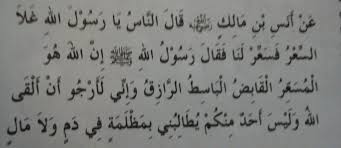 عَنْ أَنَسِ بْنِ مَالِكٍ ﷺ قَالَ النَّاسُ يَا رَسُوْلَ اللهِ غَلاَ
السِّعْرُ فَسَعِّرْ لَنَا فَقَالَ رَسُوْلُ اللهِ ﷺ إِنَّ اللهَ هُوَ
الْمُسَعِّرُ الْقَابِضُ الْبَاسِطُ الرَّازِقُ وَإِنِّي لَأَرْجُو أَنْ أَلْقَى
اللهَ وَلَيْسَ أَحَدٌ مِنْكُمْ يُطَالِبُنِي بِمَظْلَمَةٍ فِي دَمٍ وَلاَ مَالٍ